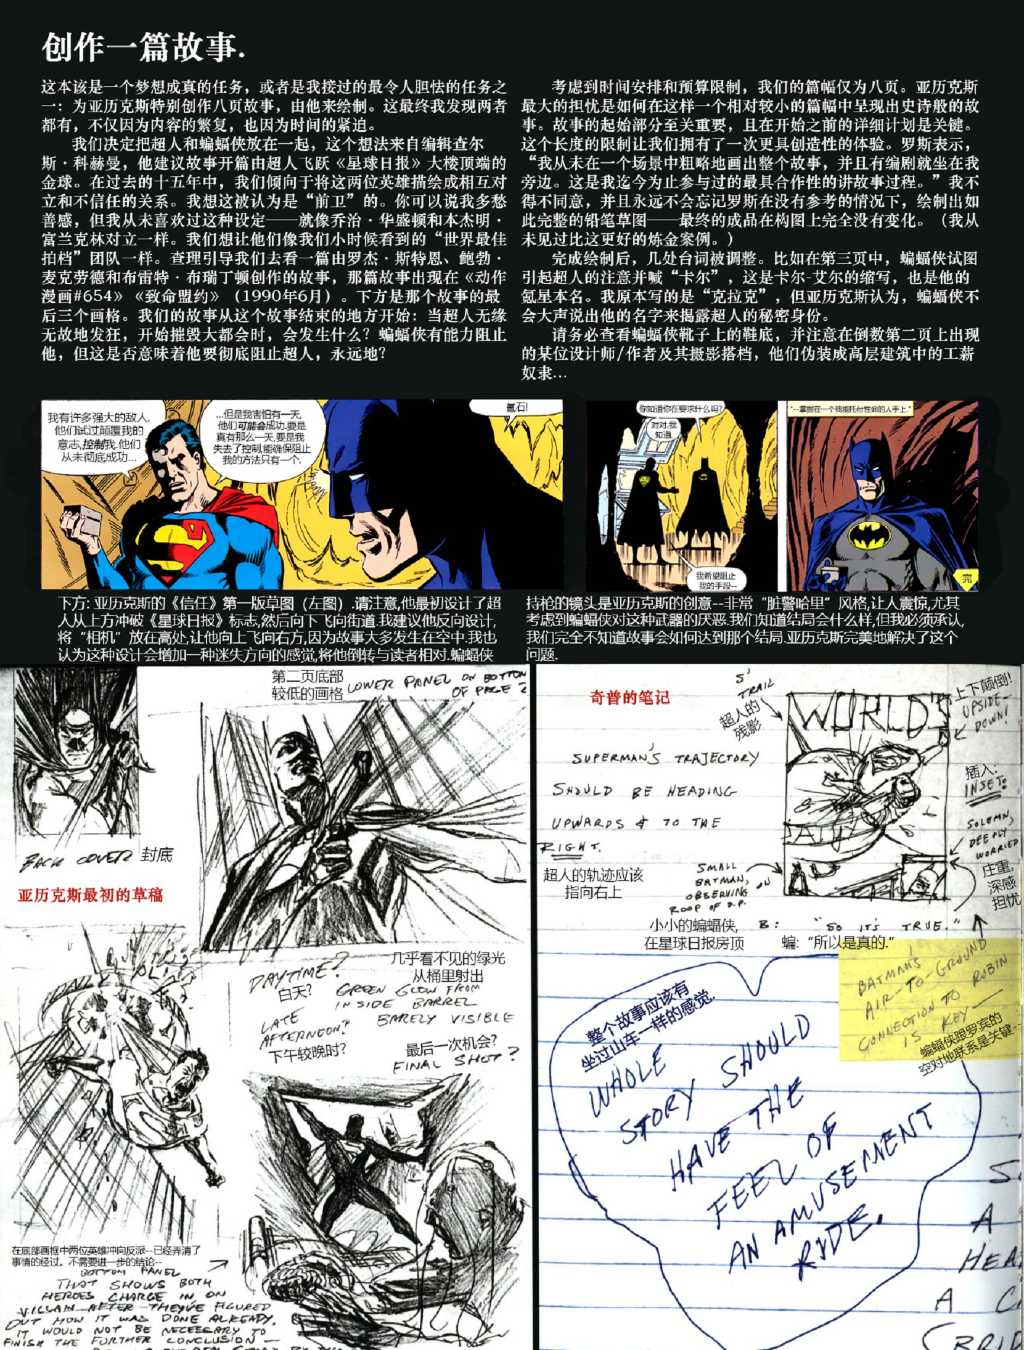 创作一篇故事.
这本该是一个梦想成真的任务，或者是我接过的最令人胆怯的任务之
一：为亚历克斯特别创作八页故事，由他来绘制。这最终我发现两者
都有，不仅因为内容的繁复，也因为时间的紧迫。
我们决定把超人和蝙蝠侠放在一起，这个想法来自编辑查尔
斯·科赫曼，他建议故事开篇由超人飞跃《星球日报》大楼顶端的
金球。在过去的十五年中，我们倾向于将这两位英雄描绘成相互对
立和不信任的关系。我想这被认为是“前卫”的。你可以说我多愁
善感，但我从未喜欢过这种设定——就像乔治·华盛顿和本杰明·
富兰克林对立一样。我们想让他们像我们小时候看到的“世界最佳
拍档”团队一样。查理引导我们去看一篇由罗杰·斯特恩、鲍勃·
麦克劳德和布雷特·布瑞丁顿创作的故事，那篇故事出现在《动作
漫画#654》《致命盟约》（1990年6月）。下方是那个故事的最
后三个画格。我们的故事从这个故事结束的地方开始：当超人无缘
无故地发狂，开始摧毁大都会时，会发生什么？蝙蝠侠有能力阻止
他，但这是否意味着他要彻底阻止超人，永远地？
考虑到时间安排和预算限制，我们的篇幅仅为八页。亚历克斯
最大的担忧是如何在这样一个相对较小的篇幅中呈现出史诗般的故
事。故事的起始部分至关重要，且在开始之前的详细计划是关键。
这个长度的限制让我们拥有了一次更具创造性的体验。罗斯表示，
“我从未在一个场景中粗略地画出整个故事，并且有编剧就坐在我
旁边。这是我迄今为止参与过的最具合作性的讲故事过程。”我不
得不同意，并且永远不会忘记罗斯在没有参考的情况下，绘制出如
此完整的铅笔草图——最终的成品在构图上完全没有变化。（我从
未见过比这更好的炼金案例。）
完成绘制后，几处台词被调整。比如在第三页中，蝙蝠侠试图
引起超人的注意并喊“卡尔”，这是卡尔-艾尔的缩写，也是他的
氪星本名。我原本写的是“克拉克”，但亚历克斯认为，蝙蝠侠不
会大声说出他的名字来揭露超人的秘密身份。
请务必查看蝙蝠侠靴子上的鞋底，并注意在倒数第二页上出现
的某位设计师/作者及其摄影搭档，他们伪装成高层建筑中的工薪
奴隶…
我有许多强大的敌人.
他们试过颠覆我的
意志,控制我.他们
从未彻底成功...
...但是我害怕有一天,
他们可能会成功.要是
真有那么一天,要是我
失去了控制,能确保阻止
我的方法只有一个.
氪石!
你知道你在要求什么吗?
对对,我
知道.
我希望阻止
我的手段--
完
下方: 亚历克斯的《信任》第一版草图（左图）.请注意,他最初设计了超
人从上方冲破《星球日报》标志,然后向下飞向街道.我建议他反向设计,
将“相机”放在高处,让他向上飞向右方,因为故事大多发生在空中.我也
认为这种设计会增加一种迷失方向的感觉,将他倒转与读者相对.蝙蝠侠
持枪的镜头是亚历克斯的创意--非常“脏警哈里”风格,让人震惊,尤其
考虑到蝙蝠侠对这种武器的厌恶.我们知道结局会什么样,但我必须承认,
我们完全不知道故事会如何达到那个结局.亚历克斯完美地解决了这个
问题.
第二页底部
较低的画格
LOWER PANEL ON BOTTOM
OF PAGE 2
BACK COVER 封底
亚历克斯最初的草稿
DAYTIME?
白天?
LATE
AFTERNOON?
下午较晚时?
几乎看不见的绿光
从桶里射出
GREEN GLOW FROM
INSIDE BARREL
BARELY VISIBLE
最后一次机会?
FINAL SHOT?
在底部画框中两位英雄冲向反派--已经弄清了
事情的经过。不需要进一步的结论--
BOTTOM PANEL
THAT SHOWS BOTH
HEROES CHARGE IN ON
VILLAIN AFTER THEY'VE FIGURED
OUT HOW IT WAS DONE ALREADY.
IT WOULD NOT BE NECESSARY TO
FINISH THE FURTHER CONCLUSION—
奇普的笔记
S'
TRAIL
超人的
残影
WORLD'S
上下颠倒!
UPSIDE-
DOWN!
SUPERMAN'S TRAJECTORY
SHOULD BE HEADING
UPWARDS & TO THE
RIGHT.
超人的轨迹应该
指向右上
插入:
INSET:
SOLEMN,
DEEPLY
WORRIED
庄重,
深感
担忧
SMALL
BATMAN,
OBSERVING
ROOF OF D.P.
小小的蝙蝠侠,
在星球日报房顶
B: "SO IT'S TRUE."
蝙:“所以是真的.”
BATMAN'S
AIR-TO-GROUND
CONNECTION TO ROBIN
IS KEY—
蝙蝠侠跟罗宾的
空对地联系是关键--
整个故事应该有
坐过山车一样的感觉.
WHOLE
STORY SHOULD
HAVE THE
FEEL OF
AN AMUSEMENT
RIDE.
A
HEA
A C